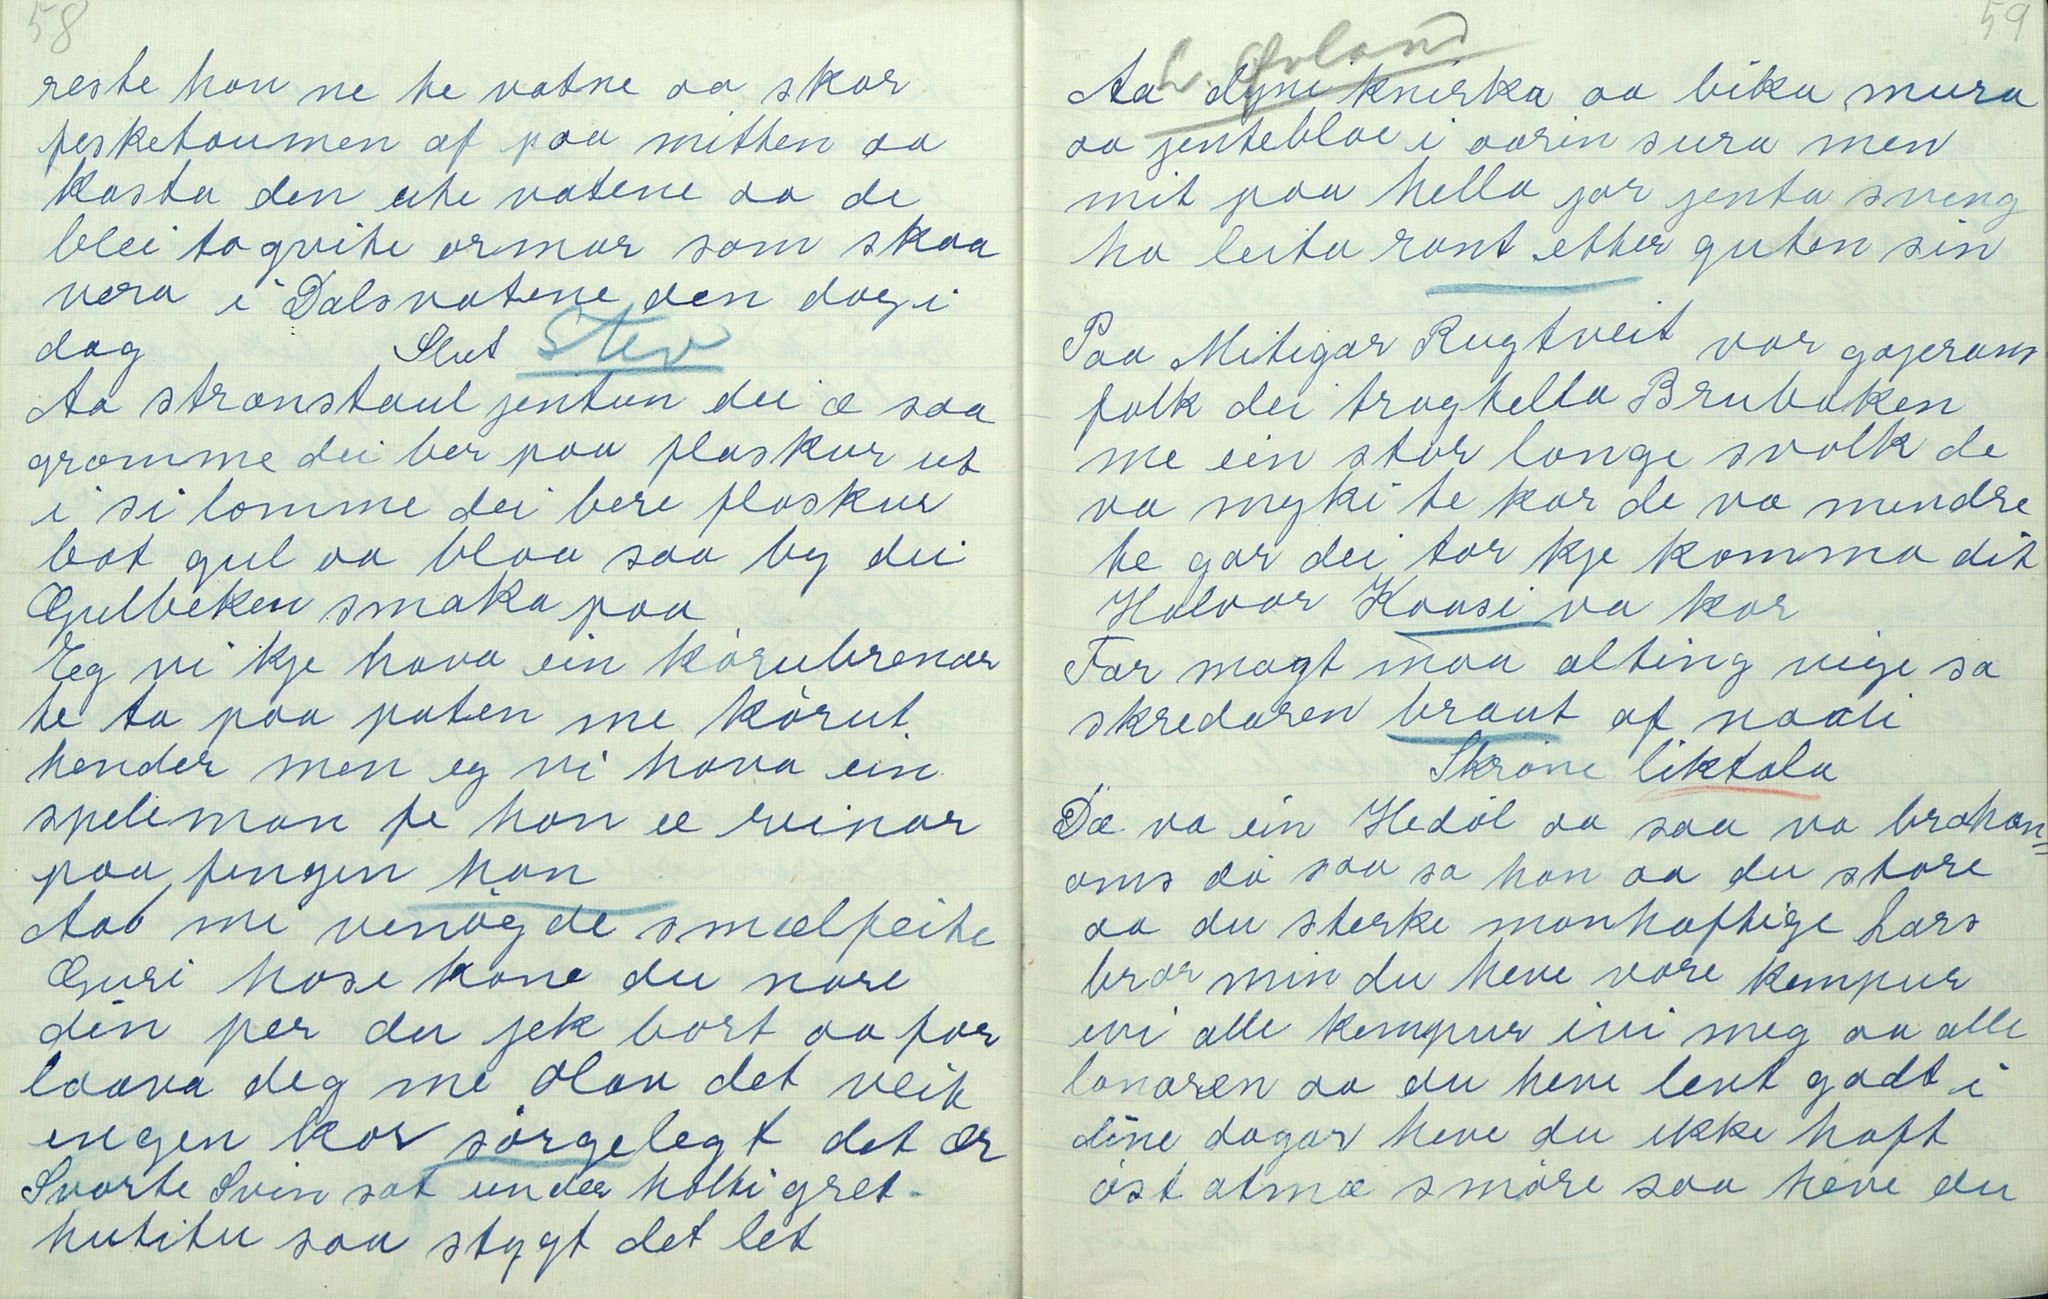 58
reste han ne te vatne aa skar
fesketaumen af paa mitten aa
kasta den ute vatene aa de
blei to qvite ormar som skaa
vera i Dalsvatene den dag i
dag Slut Stev
Aa stranstaul jentun dei æ saa
gromme dei ber paa flaskur ut
i si lomme dei bere flaskur
bot gul aa blaa saa by dei
Gulbeken smaka paa
Eg vi kje hava ein körubrenar
te ta paa paten me körut
hender men eg vi hava ein
speleman fe han æ reinar
paa fengen han
Aad me venögde smælfeite
Guri hose kone du nore
din per du jek bort aa for
laava deg me Olav det veit
ingen kor sörgelegt det ær
Svarte Svin sat under holti gret
hutitu saa stygt det let
59
L. Óvland
Aa dyni knirka aa bika mura
aa jenteblae i aarin sura men
mit paa hella jor jenta sveng
ho leita rant etter guten sin
Paa Mitigar Rugtveit var gajerans
folk dei traghella Brubaken
me ein stor lange svolk de
va myki te kar de va mendre
te gar dei tor kje komma dit
Halvor Kaasi va kar
For magt maa alting veige sa
skredaren braut af naali
Skröne liktala
Dæ va ein Hedöl aa saa va brohan=
oms dö saa sa han aa du store
aa du sterke manhaftige Lars
bror min du heve vore kempur
ivi alle kempur ivi meg aa alle
lanaren aa du heve levt godt i
dine dagar heve du ikke haft
öst atmæ smöre saa heve du